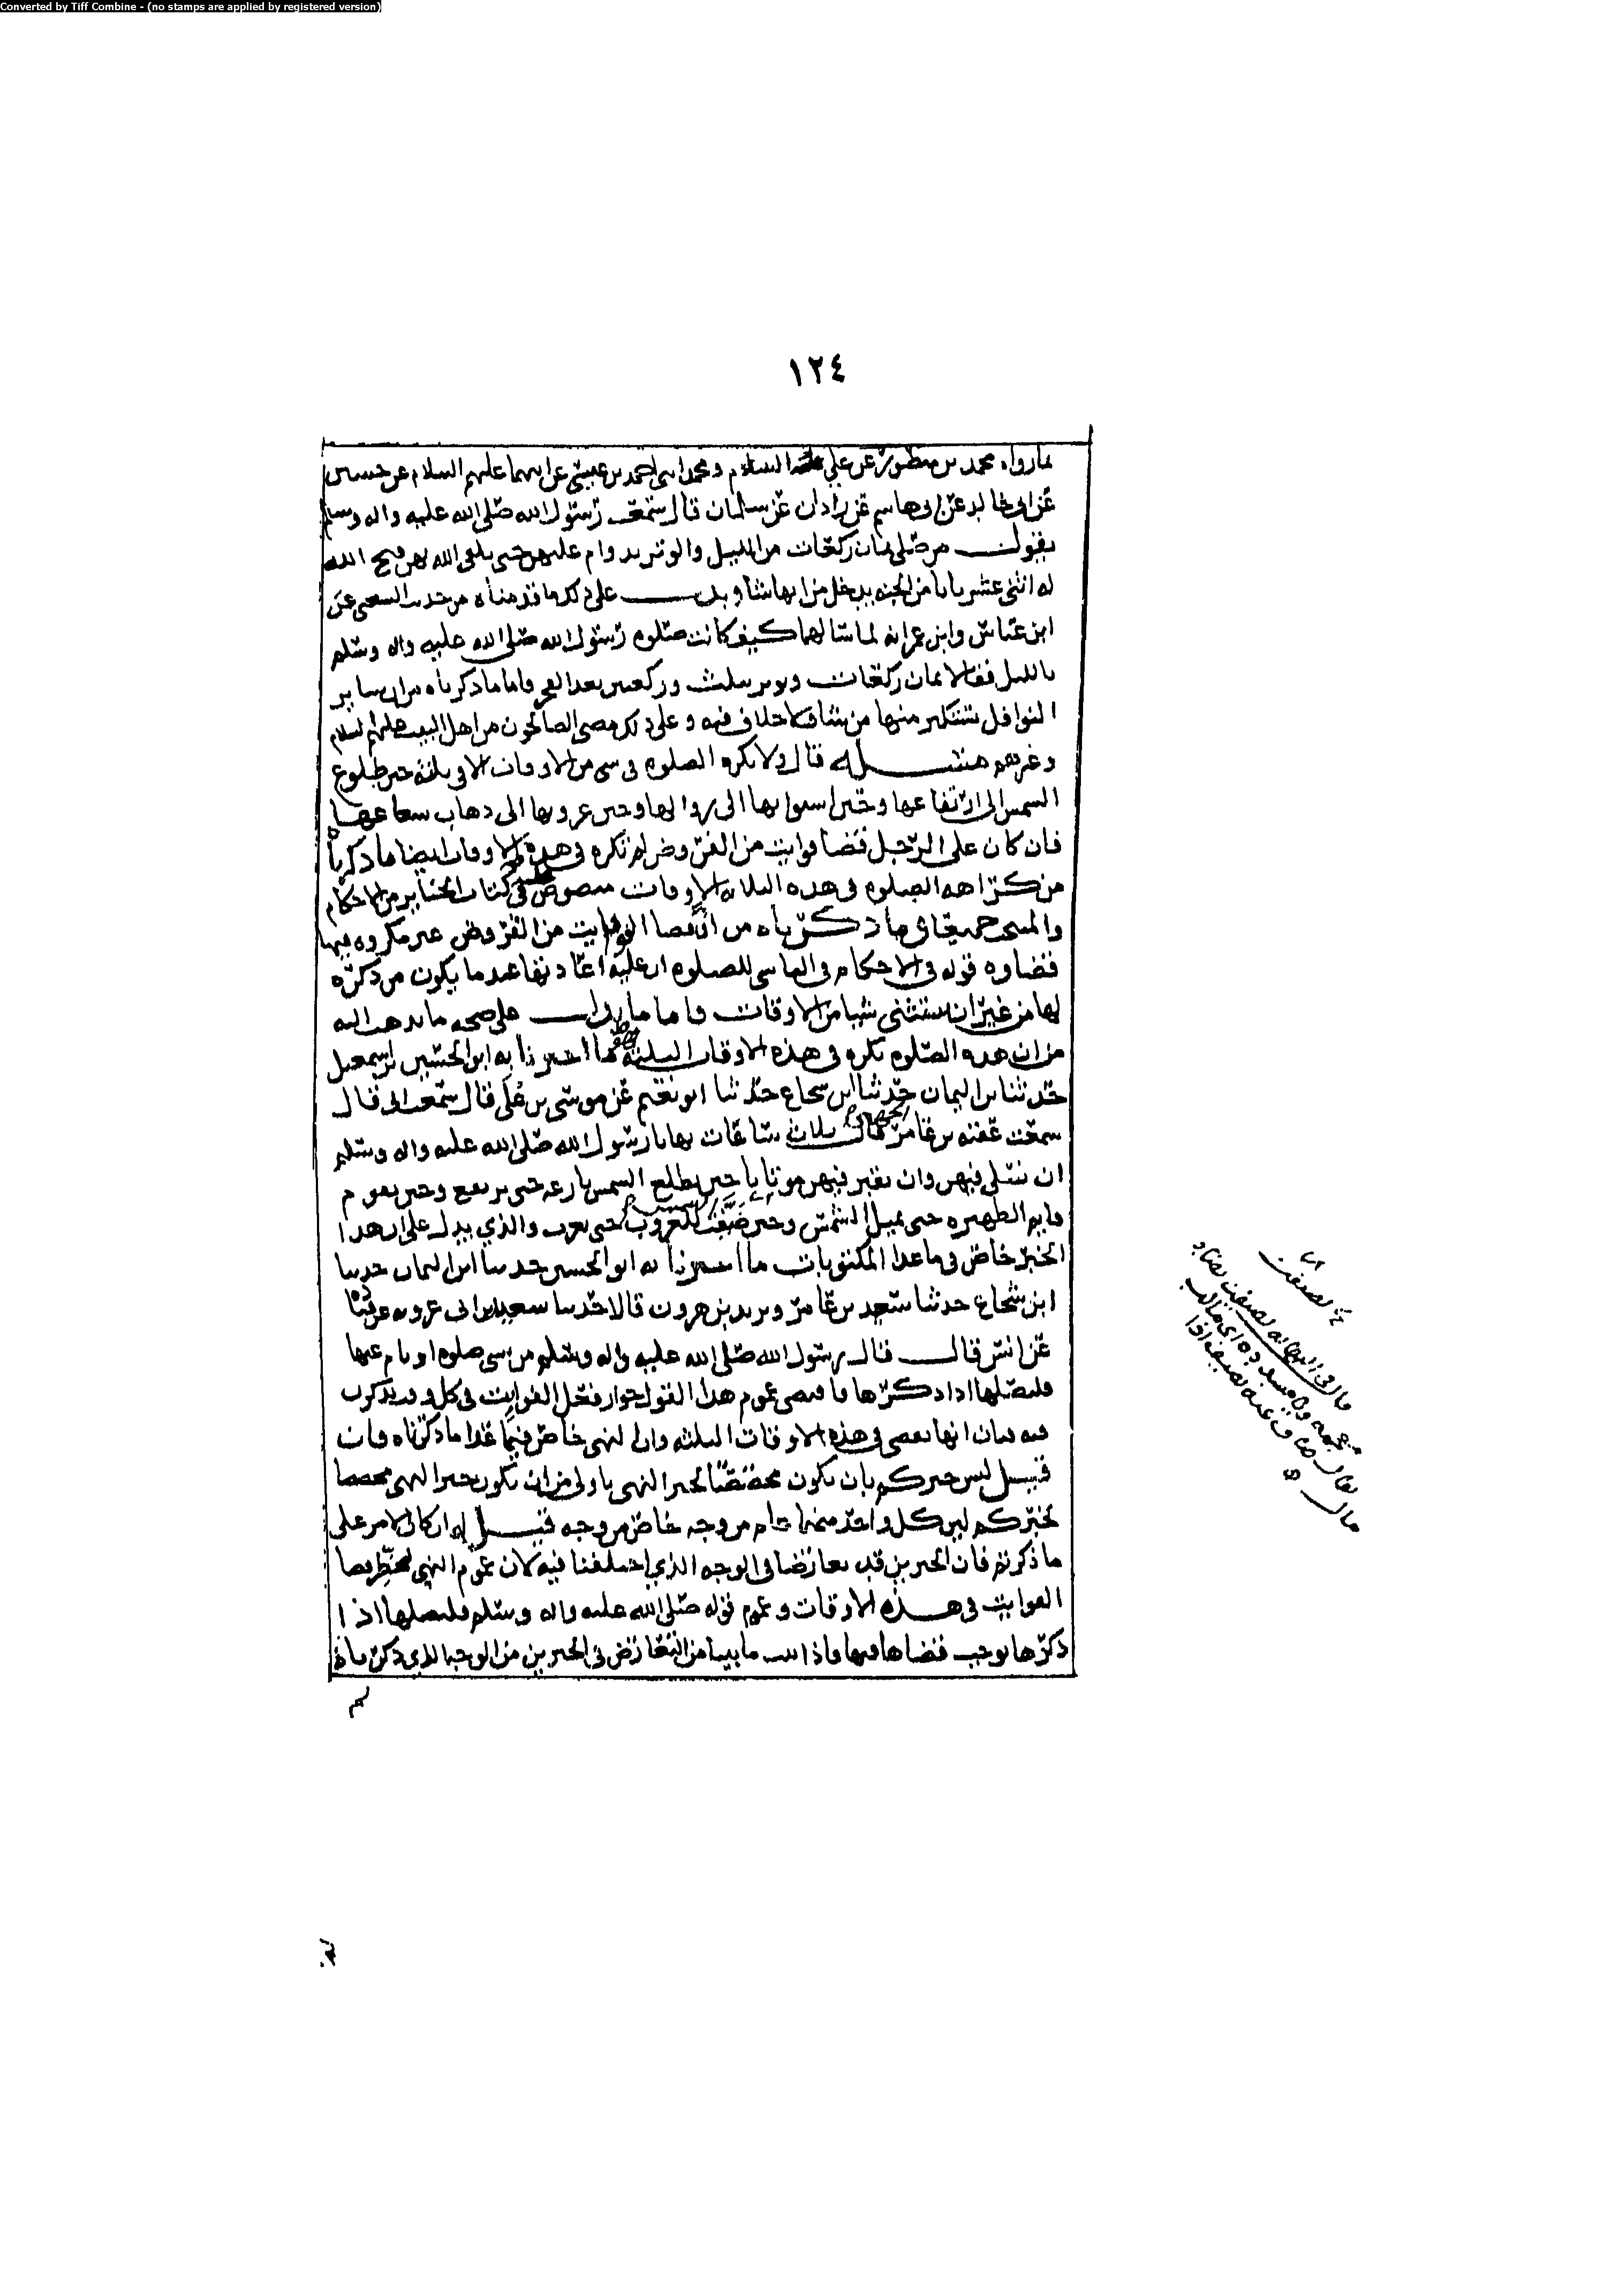 Converted by Tiff Combine - (no stamps are applied by registered version)
١٢٤
لما رواه محمد بن منصور عن علي السلام ومحمد ابني احمد بن عيسى عن ابيهما عليهم السلام عن حسين
عن ابي خالد عن ابي هاشم عن زاذان عن سلمان قال سمعت رسول الله صلى الله عليه واله وسلم
يقول من صلى ثمان ركعات من الليل والوتر يداوم عليهن حتى يلقى الله بهن فتح الله
له اثنى عشر بابا من الجنه يدخل من ايها شا ويدل على ذلك ما قدمناه من حديث الشعبي عن
ابن عباس وابن عمر انه لما سالهما كيف كانت صلوه رسول الله صلى الله عليه واله وسلم
بالليل فقالا ثمان ركعات ويوتر بثلث وركعتين بعد الفجر واما ما ذكرناه من ان ساير
النوافل يستكثر منها من شا فلا خلاف فيه وعلى ذلك مضى الصالحون من اهل البيت عليهم السلم
وغيرهم مسئله قال ولا تكره الصلوه في شي من الاوقات الا في ثلثه حين طلوع
الشمس الى ارتفاعها وحين استوايها الى زوالها وحين غروبها الى ذهاب شعاعها
فان كان على الرجل قضا فوايت من الفروض لم تكره في هذه الاوقات ايضا ما ذكرناه
من كراهه الصلوه في هذه الثلاثه الاوقات منصوص في كتاب الجنايز من الاحكام
والمنتخب جميعا وما ذكرناه من ان قضا الفوايت من الفروض غير مكروه فيها
فضاوه قوله في الاحكام في الناسي للصلوه ان عليه اعادتها عند ما يكون من ذكره
لها من غير ان يستثنى شيا من الاوقات واما ما يدل على صحه ما نذهب اليه
من ان هذه الصلوه تكره في هذه الاوقات الثلثه فما اخبرنا به ابو الحسين بن اسمعيل
حدثنا بن اليمان حدثنا ابن شجاع حدثنا ابو نعيم عن موسى بن علي قال سمعت ابي قال
سمعت عقبه بن عامر الجهني قال ثلاث ساعات نهانا رسول الله صلى الله عليه واله وسلم
ان نصلي فيهن وان نقبر فيهن موتانا حين تطلع الشمس بازغه حتى ترتفع وحين يقوم
قايم الظهيره حتى تميل الشمس وحين تضيف الشمس للغروب حتى تغرب والذي يدل على ان هذا
الخبر خاص في ما عدا المكتوبات ما اخبرنا به ابو الحسين حدثنا ابن اليمان حدثنا
ابن شجاع حدثنا سعيد بن عامر ويزيد بن هرون قالا حدثنا سعيد بن ابي عروبه عن قتاده
عن انس قال قال رسول الله صلى الله عليه واله وسلم من نسي صلوه او نام عنها
فليصلها اذا ذكرها فاقتضى عموم هذا القول جواز فعل الفوايت في كل وقت يذكرن
فيه فبان انها تقضى في هذه الاوقات الثلثه وان النهي خاص فيما عدا ما ذكرناه فان
قيل ليس خبركم بان يكون مخصصا لخبر النهي باولى من ان يكون خبر النهي مخصصا
لخبركم لان كل واحد منهما عام من وجه خاص من وجه قيل له ان كان الامر على
ما ذكرتم فان الخبرين قد تعارضا في الوجه الذي اختلفنا فيه لان عموم النهي يحظر قضا
الفوايت في هذه الاوقات وعموم قوله صلى الله عليه واله وسلم فليصلها اذا
ذكرها يوجب قضاها فيها فاذا ثبت ما بينا من التعارض في الخبرين من الوجه الذي ذكرناه
تضيفت
قال في النهايه تضيفت
يقال ضاف عنه يضيف اذا
مال